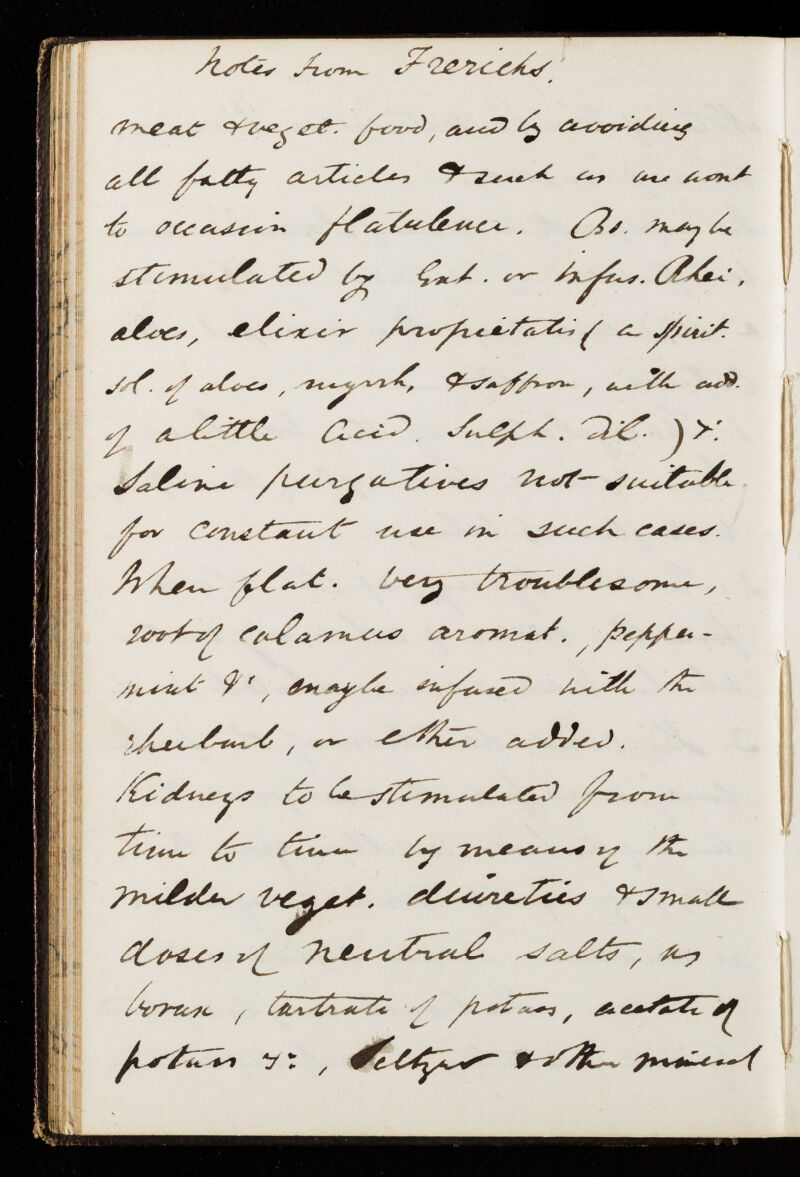 Notes from Frerichs.
meat & veget. food, and by avoiding
all fatty articles & such as are wont
to occasion flatulence. Bo. may be
stimulated by Ext. or Infus. Rhei,
aloes, elixir proprietatis ( a spirit.
sol. of aloes, myrrh, & saffron, with add.
of a little Acid. Sulph. Dil. ) &c.
Saline purgatives not suitable
for constant use in such cases.
When flat. very troublesome,
root of calamus aromat., pepper-
mint &c, maybe infused with the
rheubarb, or ether added.
Kidneys to be stimulated from
time to time by means of the
milder veget. diuretics & small
doses of neutral salts, as
borax, tartrate of potass, acetate of
potass &c, Seltzer & other mineral